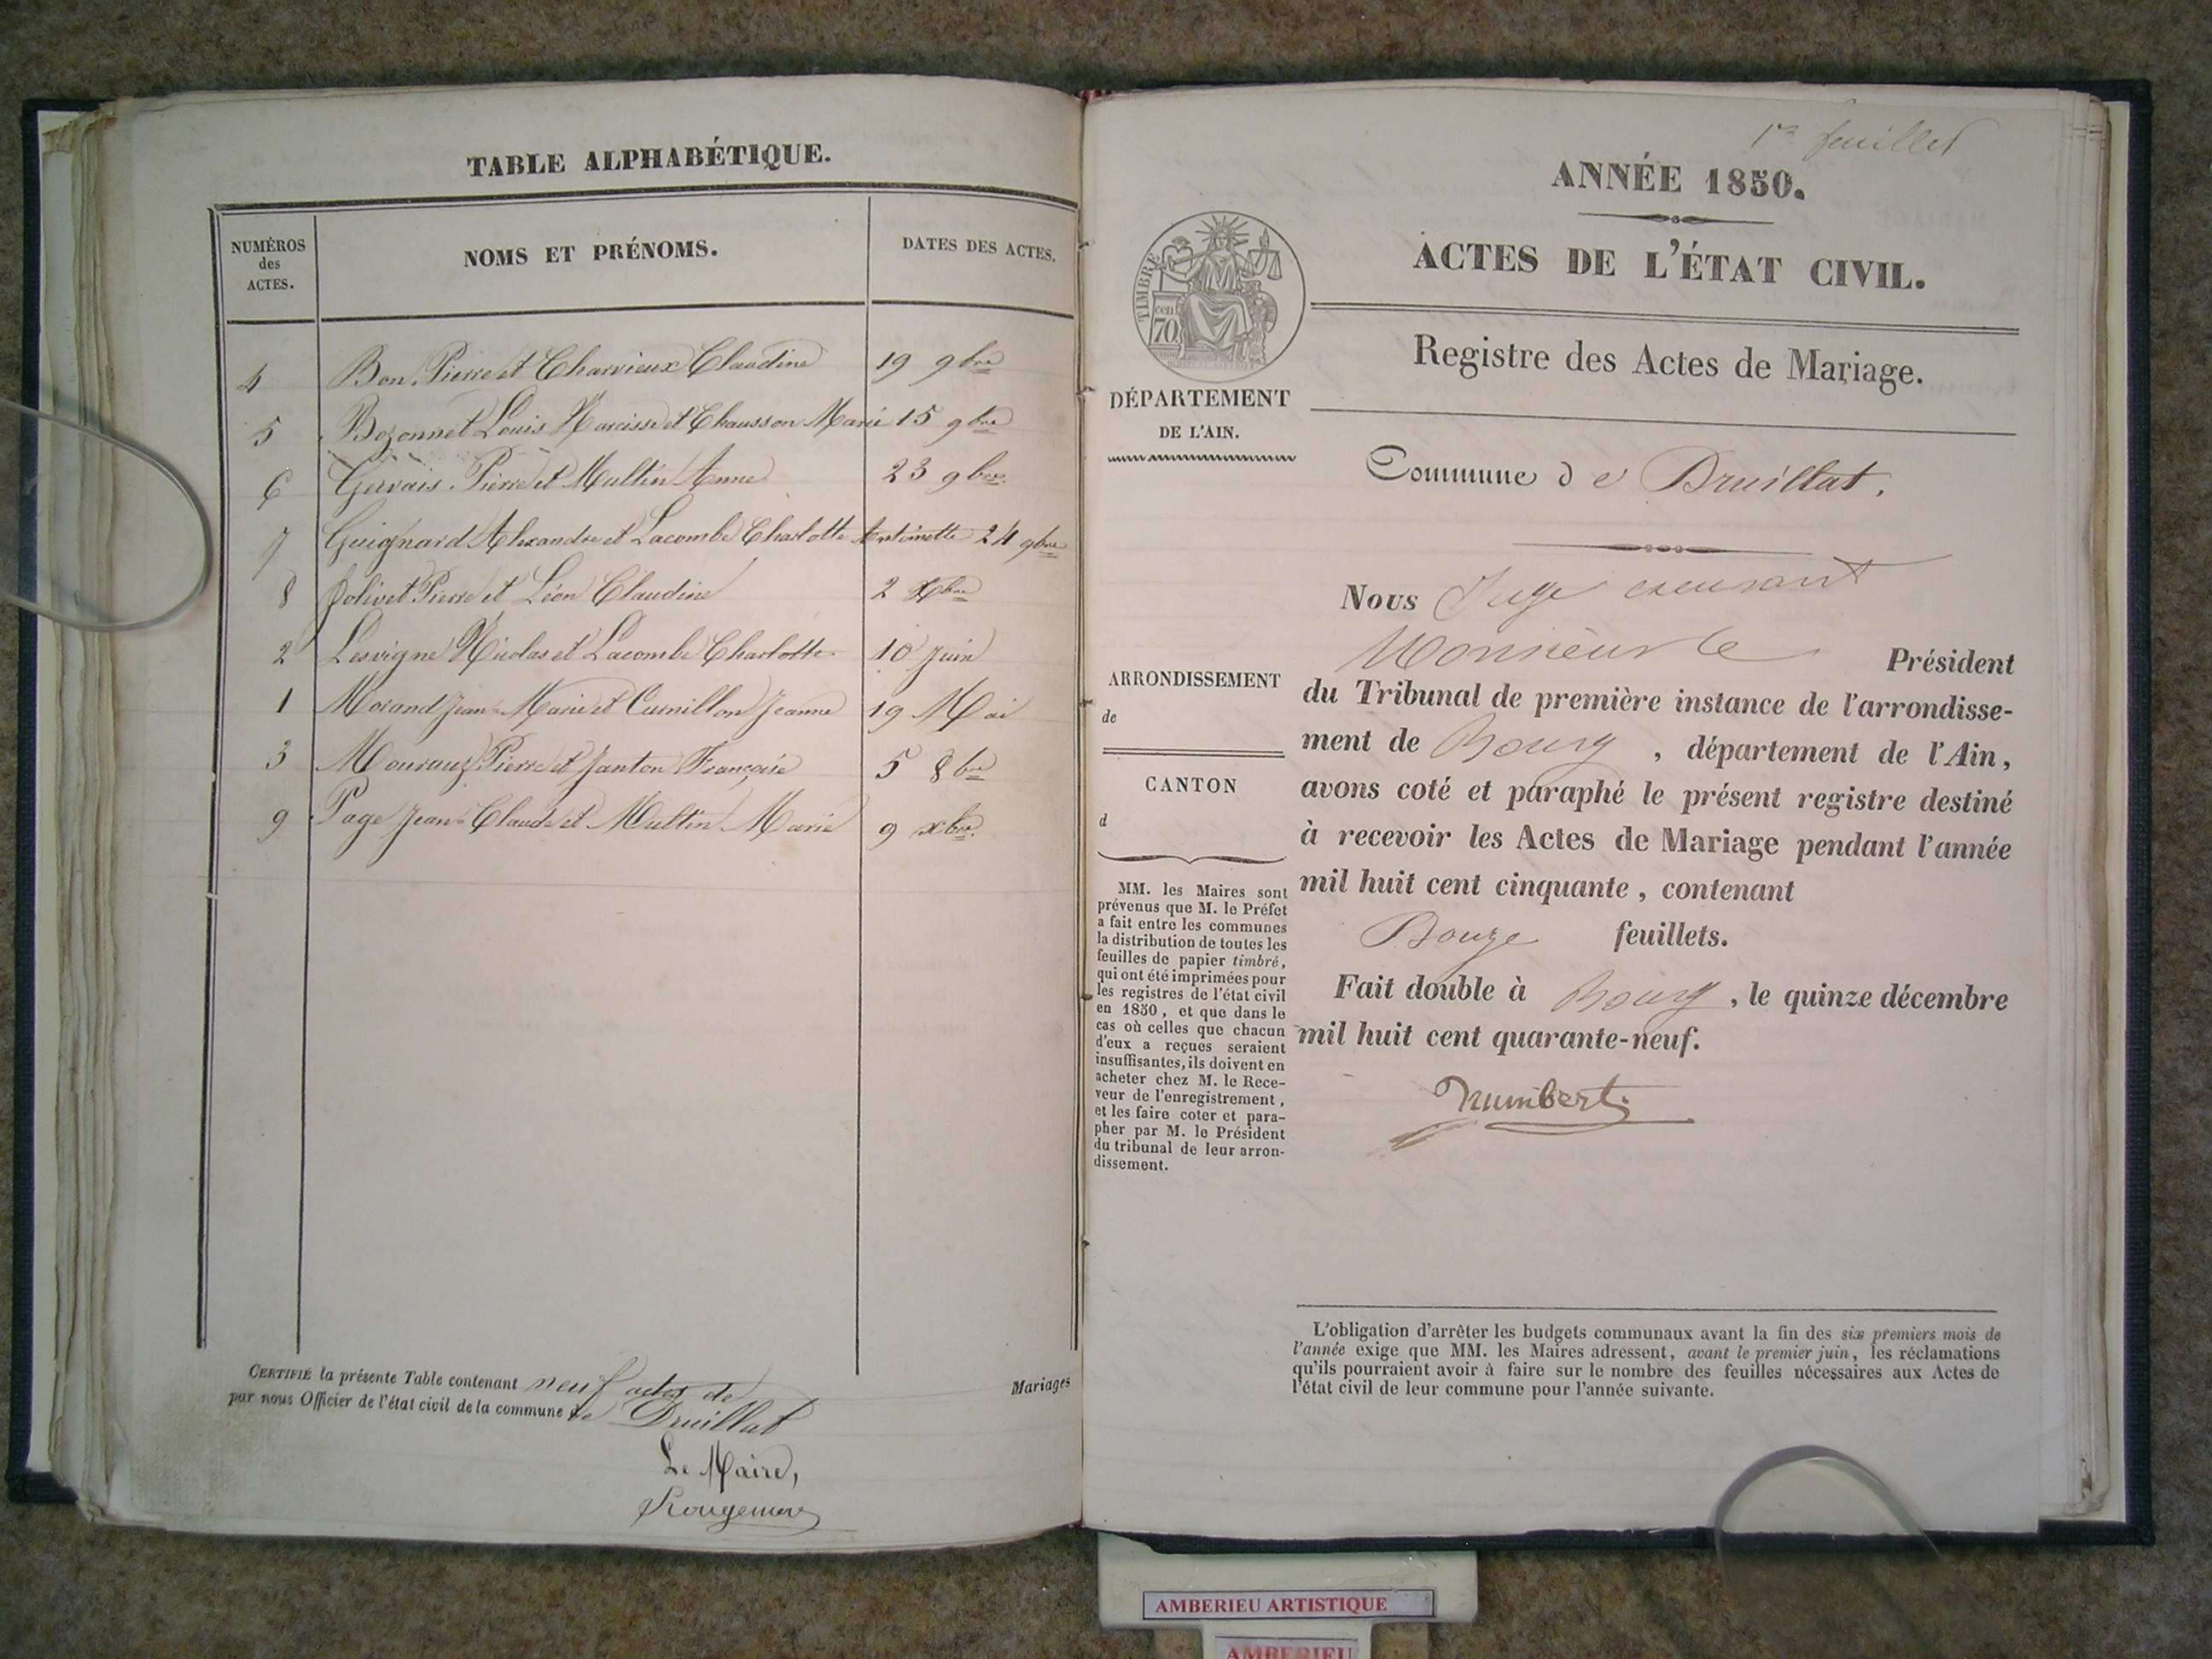 TABLE ALPHABÉTIQUE.
NUMÉROS
des
ACTES.
NOMS ET PRÉNOMS.
DATES DES ACTES.
4 Bon Pierre et Charvieux Claudine 19 9bre
5 Bozonnet Louis Narcisse et Chausson Marie 15 9bre
6 Gervais Pierre et Multin Anne 23 9bre
7 Guignard Alexandre et Lacombe Charlotte Antoinette 24 9bre
8 Jolivet Pierre et Léon Claudine 2 Xbre
2 Lesvigne Nicolas et Lacombe Charlotte 10 Juin
1 Morand Jean-Marie et Cumillon Jeanne 19 Mai
3 Mouraux Pierre et Janton Françoise 5 8bre
9 Page Jean-Claude et Multin Marie 9 xbre.
CERTIFIÉ la présente Table contenant neuf actes de Mariages
par nous Officier de l'état civil de la commune de Druillat
Le Maire,
Rougemont
1er feuillet
ANNÉE 1850.
ACTES DE L'ÉTAT CIVIL.
Registre des Actes de Mariage.
Commune de Druillat.
TIMBRE
cen
70
DÉPARTEMENT
DE L'AIN.
ARRONDISSEMENT
de
CANTON
d
MM. les Maires sont
prévenus que M. le Préfet
a fait entre les communes
la distribution de toutes les
feuilles de papier timbré,
qui ont été imprimées pour
les registres de l'état civil
en 1850, et que dans le
cas où celles que chacun
d'eux a reçues seraient
insuffisantes, ils doivent en
acheter chez M. le Rece-
veur de l'enregistrement,
et les faire coter et para-
pher par M. le Président
du tribunal de leur arron-
dissement.
Nous Juge excusant
Monsieur le Président
du Tribunal de première instance de l'arrondisse-
ment de Bourg, département de l'Ain,
avons coté et paraphé le présent registre destiné
à recevoir les Actes de Mariage pendant l'année
mil huit cent cinquante, contenant
Douze feuillets.
Fait double à Bourg, le quinze décembre
mil huit cent quarante-neuf.
L'obligation d'arrêter les budgets communaux avant la fin des six premiers mois de
l'année exige que MM. les Maires adressent, avant le premier juin, les réclamations
qu'ils pourraient avoir à faire sur le nombre des feuilles nécessaires aux Actes de
l'état civil de leur commune pour l'année suivante.
AMBERIEU ARTISTIQUE
AMBERIEU